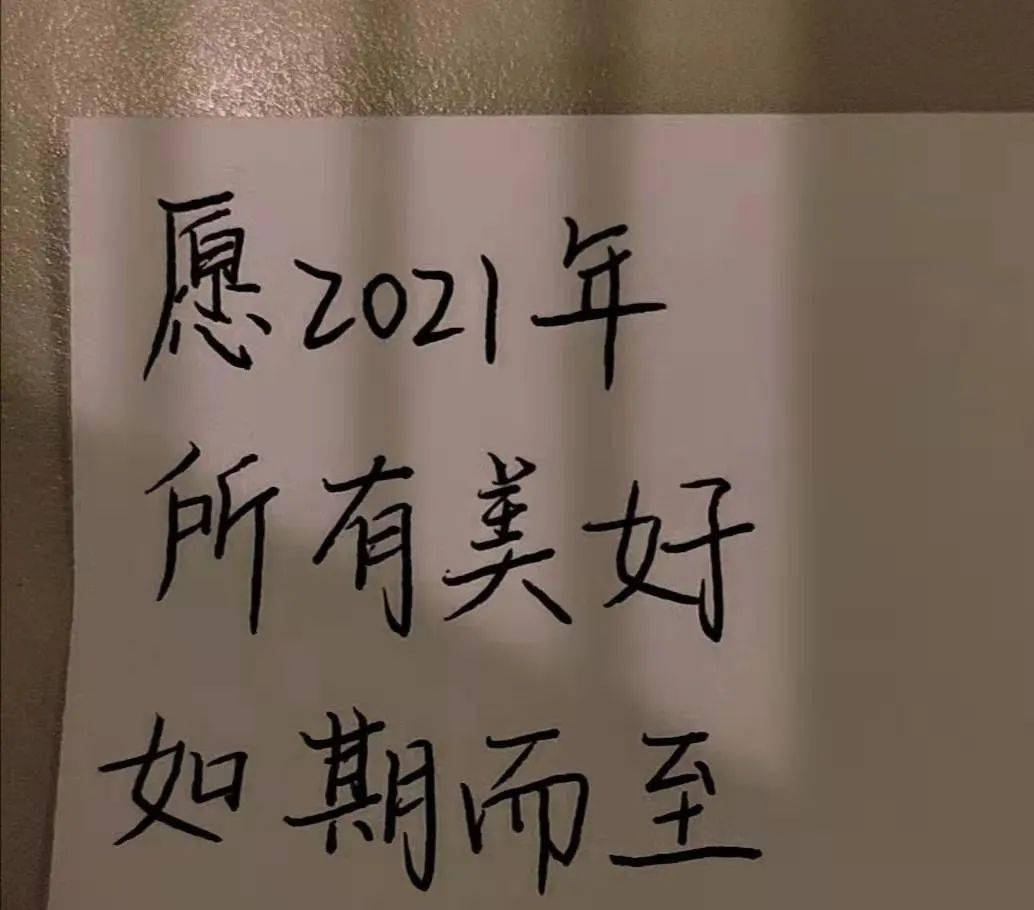 愿2021年
所有美好
如期而至